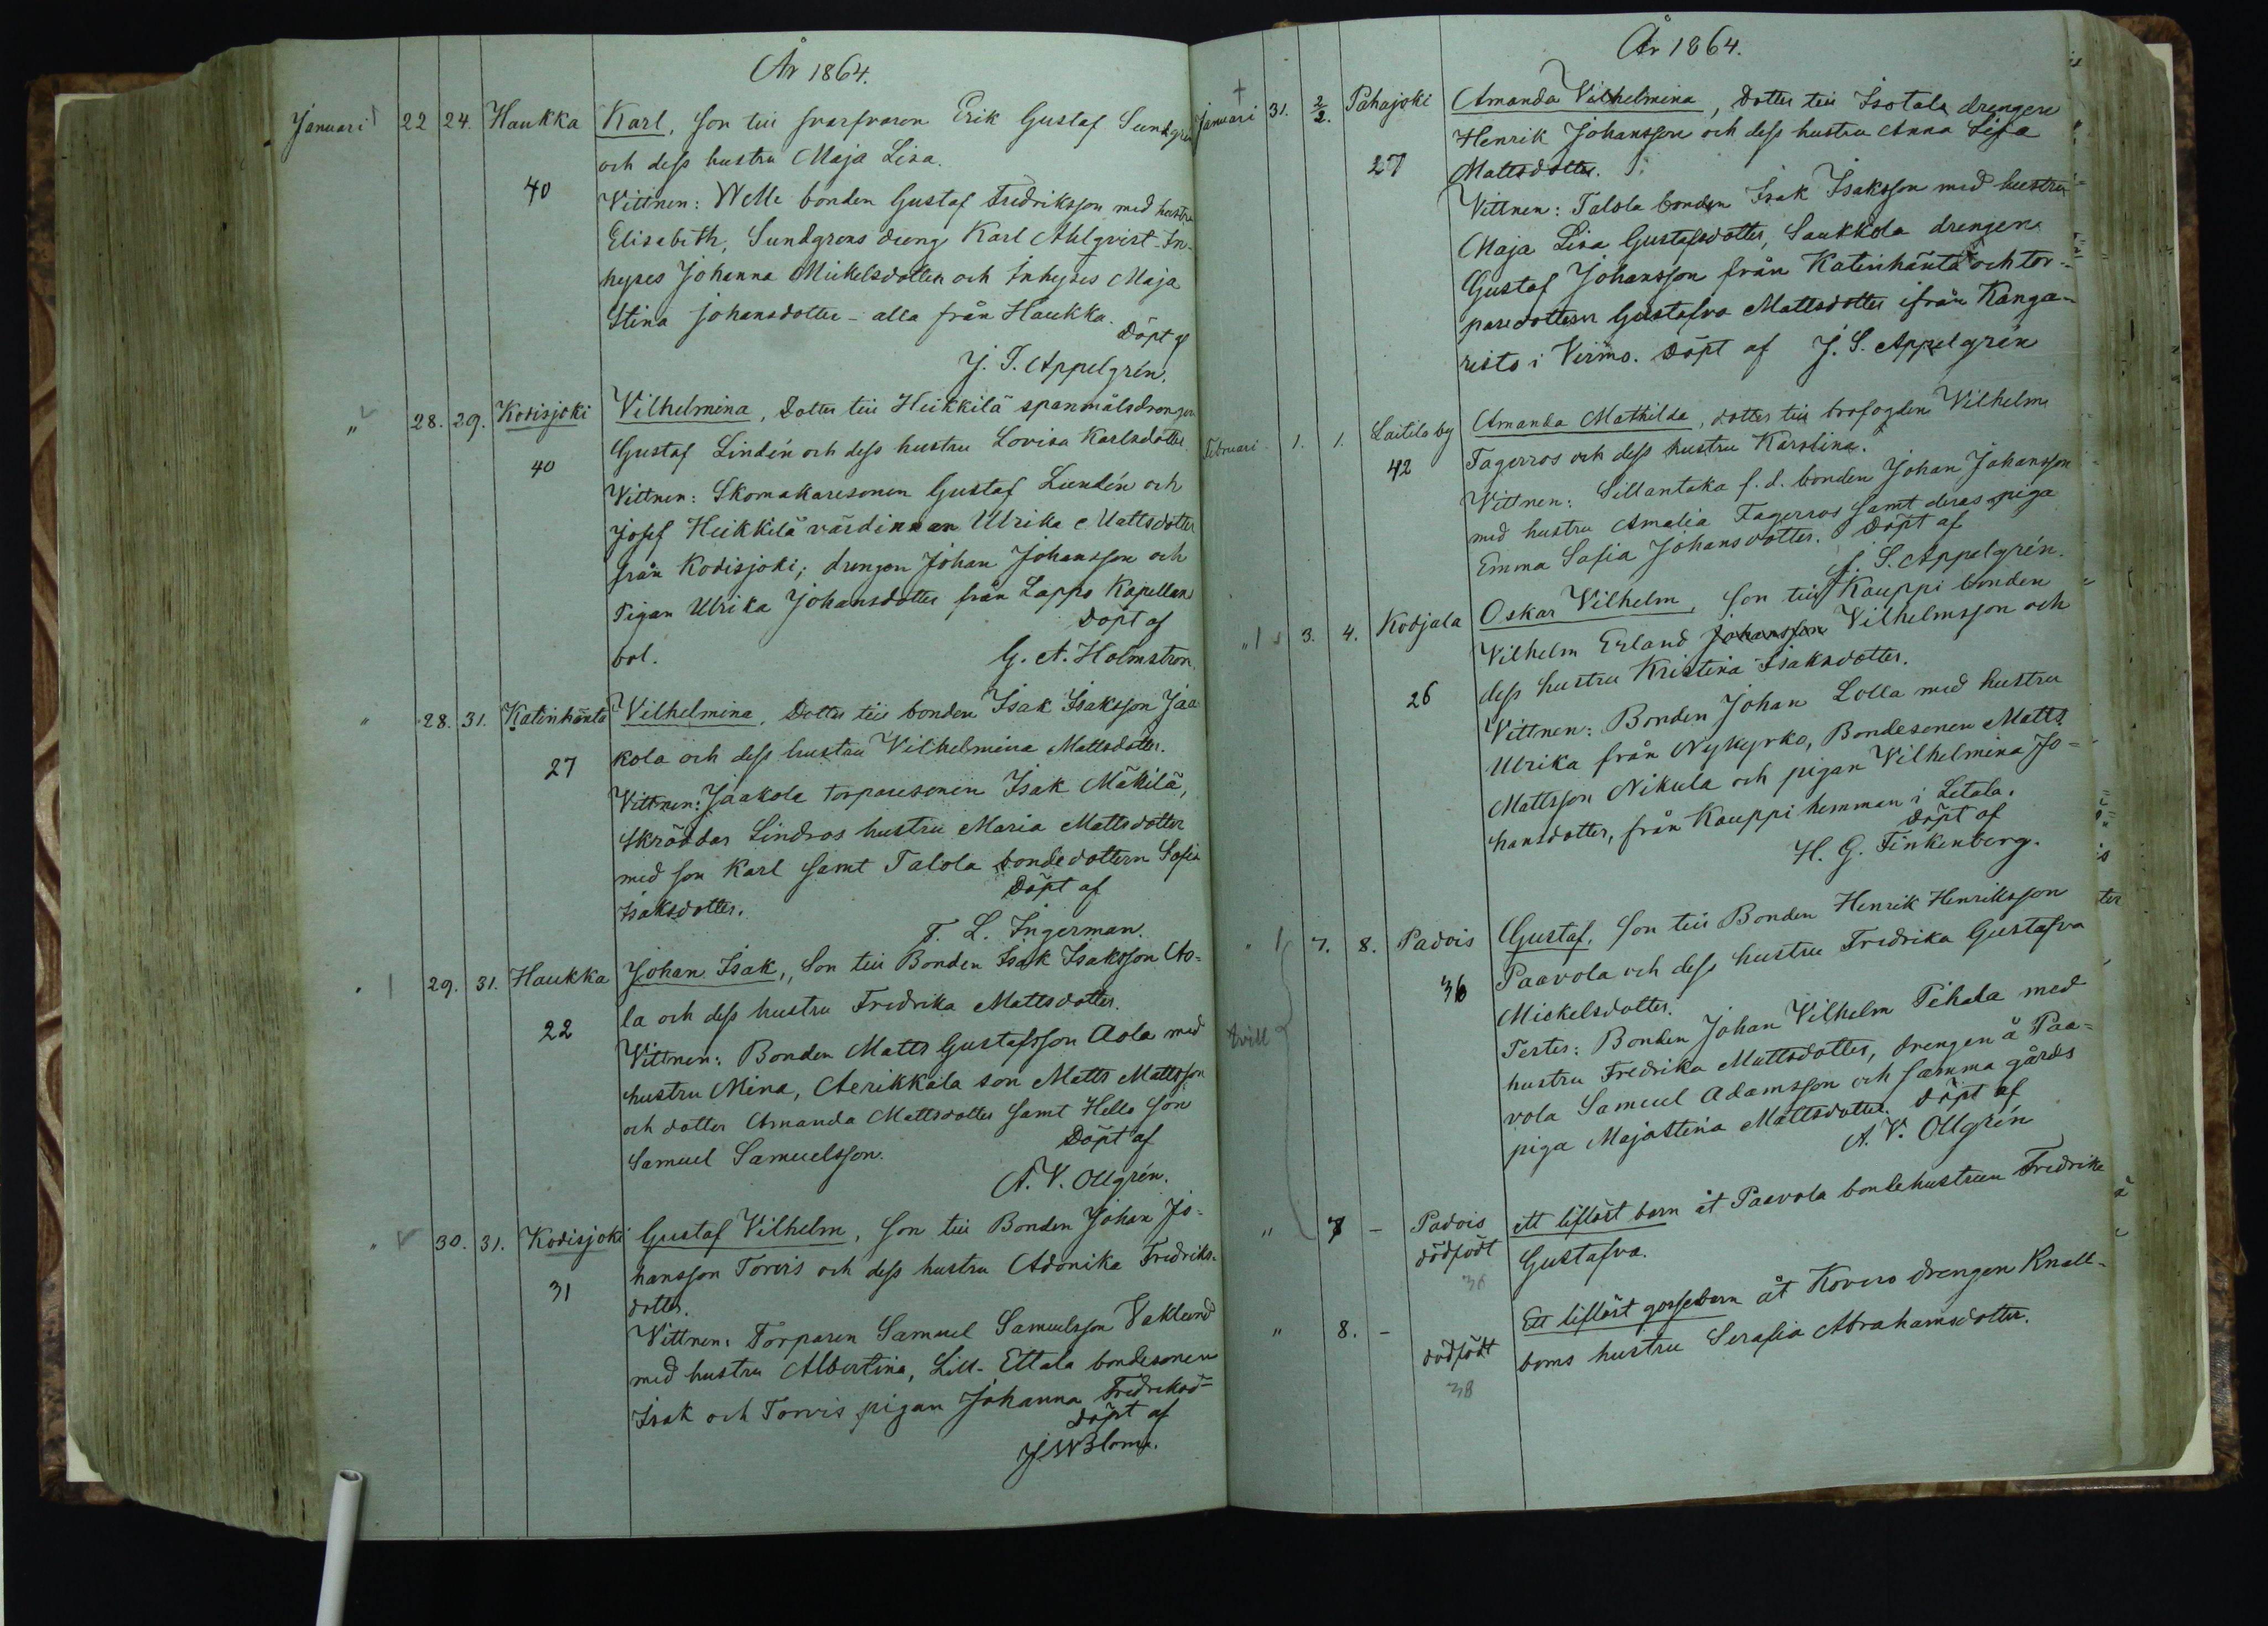 År 1864.
Januari 22 24. Haukka Karl, Son till svarfvaren Erik Gustaf Sundgren
och dess hustru Maja Lisa.
40 Vittnen: Welle bonden Gustaf Fredriksson med hustru
Elisabeth, Sundgrens dreng Karl Ahlqvist - In-
hyses Johanna Mickelsdotter och Inhyses Maja
Stina Johansdotter - alla från Haukka.
Döpt af
J. S. Appelgrén.
" 28. 29. Kodisjoki Vilhelmina, Dotter till Heikkilä spanmålsdrengen
40 Gustaf Lindén och dess hustru Lovisa Karlsdotter
Vittnen: Skomakaresonen Gustaf Lundén och
Josef Heikkilä värdinnan Ulrika Mattsdotter
från Kodisjoki; drengen Johan Johansson och
Pigan Ulrika Johansdotter från Lappo Kapellans
bol. Döpt af
G. A. Holmström.
" 28. 31. Katinhänta Vilhelmina, Dotter till bonden Isak Isaksson Jaa-
27 kola och dess hustru Vilhelmina Mattsdotter.
Vittnen: Jaakola torparesonen Isak Mäkilä,
Skräddar Lindros hustru Maria Mattsdotter
med son Karl samt Talola bondedottern Sofia
Isaksdotter. Döpt af
F. L. Ingerman.
29. 31. Haukka Johan Isak, Son till Bonden Isak Isaksson Ao-
22 la och dess hustru Fredrika Mattsdotter.
Vittnen: Bonden Matts Gustafsson Aola med
hustru Mina, Aerikkala son Matts Mattsson
och dotter Amanda Mattsdotter samt Hello son
Samuel Samuelsson. Döpt af
A. V. Ollgrén.
" 30. 31. Kodisjoki Gustaf Vilhelm, Son till Bonden Johan Jo-
31 hansson Torvis och dess hustru Adonika Fredriks-
dotter.
Vittnen: Torparen Samuel Samuelsson Vaklund
med hustru Albertina, Lill-Ettala bondesonen
Isak och Torvis pigan Johanna Fredriksd=
Döpt af
J W Blom.
År 1864.
Januari 31. 2/2. Pahajoki Amanda Vilhelmina, Dotter till Isotala drengen
Henrik Johansson och dess hustru Anna Lisa
27 Mattsdotter.
Vittnen: Talola bonden Isak Isaksson med hustru
Maja Lisa Gustafsdotter, Saukkola drengen
Gustaf Johansson från Katinhänta och tor-
paredottern Gustafva Mattsdotter ifrån Kanga-
risto i Virmo. Döpt af J. S. Appelgrén
Februari 1. 1. Laitila by Amanda Mathilda, dotter till brofogden Vilhelm
42 Fagerros och dess hustru Karolina.
Vittnen: Sillantaka f. d. bonden Johan Johansson
med hustru Amalia Fagerros samt deras piga
Emma Sofia Johansdotter. Döpt af
J. S. Appelgrén.
" 3. 4. Kodjala Oskar Vilhelm, Son till Kauppi bonden
Vilhelm Erland Johansson Vilhelmsson och
26 dess hustru Kristina Isaksdotter.
Vittnen: Bonden Johan Lolla med hustru
Ulrika från Nykyrko, Bondesonen Matts
Mattsson Nikula och pigan Vilhelmina Jo-
hansdotter, från Kauppi hemman i Letala.
Döpt af
H. G. Finkenberg.
" 7. 8. Padois Gustaf, Son till Bonden Henrik Henriksson
36 Paavola och dess hustru Fredrika Gustafva
Mickelsdotter.
Testes: Bonden Johan Vilhelm Pihala med
hustru Fredrika Mattsdotter, drengen å Paa-
vola Samuel Adamsson och samma gårds
piga Majastina Mattsdotter. Döpt af
A. V. Ollgrén
tvill
" 7 - Padois ett liflöst barn åt Paavola bondehustrun Fredrika
dödfödt Gustafva.
36
" 8. - Ett liflöst gossebarn åt Kovero drengen Knall-
dödfödt boms hustru Serafia Abrahamsdotter.
38